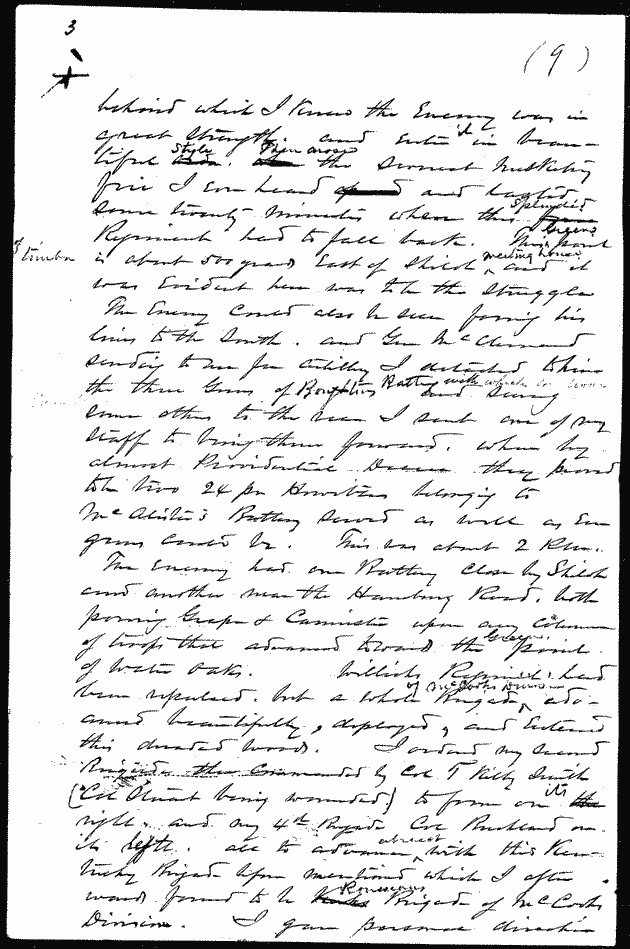 3
(9)
behind which I knew the Enemy was in
great strength. and enter'd it in beau-
tiful style. Then arose the severest Musketry
fire I ever heard and lasted
some twenty minutes when this splendid
Regiment had to fall back. This green point
of timber
is about 500 yards East of Shiloh meeting house, and it
was Evident here was to be the struggle
The Enemy could also be seen forming his
lines to the South. and Gen McClernand
sending to me for Artillery I detached to him
the three Guns of Battery and seeing
some others to the rear I sent one of my
staff to bring them forward. when by
almost Providential Decree they proved
to be two 24 pr Howitzers belonging to
McAlister's Battery served as well as Ever
guns could be. This was about 2 P.M.
The Enemy had one Battery close by Shiloh
and another near the Hamburg Road. both
pouring Grape & Cannister upon any column
of troops that advanced toward the Green point
of water oaks. Willich's Regiment had
been repulsed. but a whole Brigade of McCook's Division adv-
anced beautifully, deployed, and Entered
this dreaded woods. I ordered my second
Brigade then Commanded by Col T Kilby Smith
(Col Stuart being wounded.) to form on its
right, and my 4th Brigade Col Buckland on
its left. all to advance abreast with this Ken-
tucky Brigade before mentioned which I after-
wards found to be Rousseau's Brigade of McCook's
Division. I gave personal direction